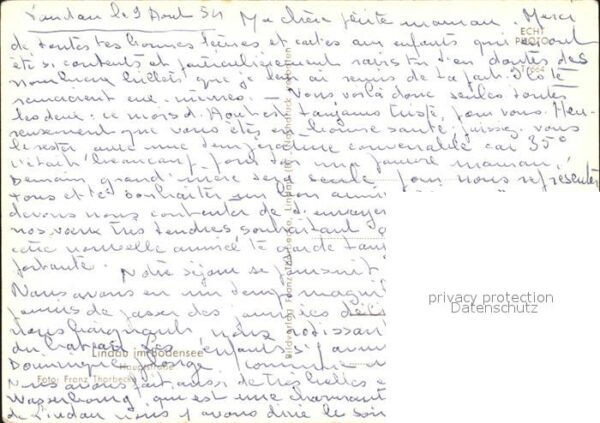 Lindau le 9 Août 54 Ma chère petite maman. Merci
de toutes tes bonnes lettres et cartes aux enfants qui ont
été si contents et particulièrement ravis tu t'en doutes des
nombreux billets que je leur ai remis de ta part. Ils t'en
remercient eux-mêmes. — Vous voilà donc seules toutes
les deux : ce mois d'Août est toujours triste pour vous. Heu-
reusement que vous êtes en bonne santé, puissiez-vous
le rester avec une température convenable car 35°
c'était beaucoup pour toi ma pauvre maman.
Demain grand'mère sera seule pour nous représenter
tous et te souhaiter un bon anni
devons nous contenter de t'envoyer
nos vœux très tendres souhaitant
cette nouvelle année te garde tou
portante. Notre séjour se poursuit
Nous avons eu un temps magni
permis de passer des journées de
nous baignant, nous rôtissant
du bateau. Les enfants s'y amu
Dominique plonge comme
Nous avons fait aussi de très belles
Wasserbourg qui est une charmant
de Lindau nous y avons dîné le soir
ECHT
PHOTO
Lindau im Bodensee
Hauptstraße
Foto: Franz Thorbecke
Bildverlag Franz Thorbecke, Lindau (B)
privacy protection
Datenschutz